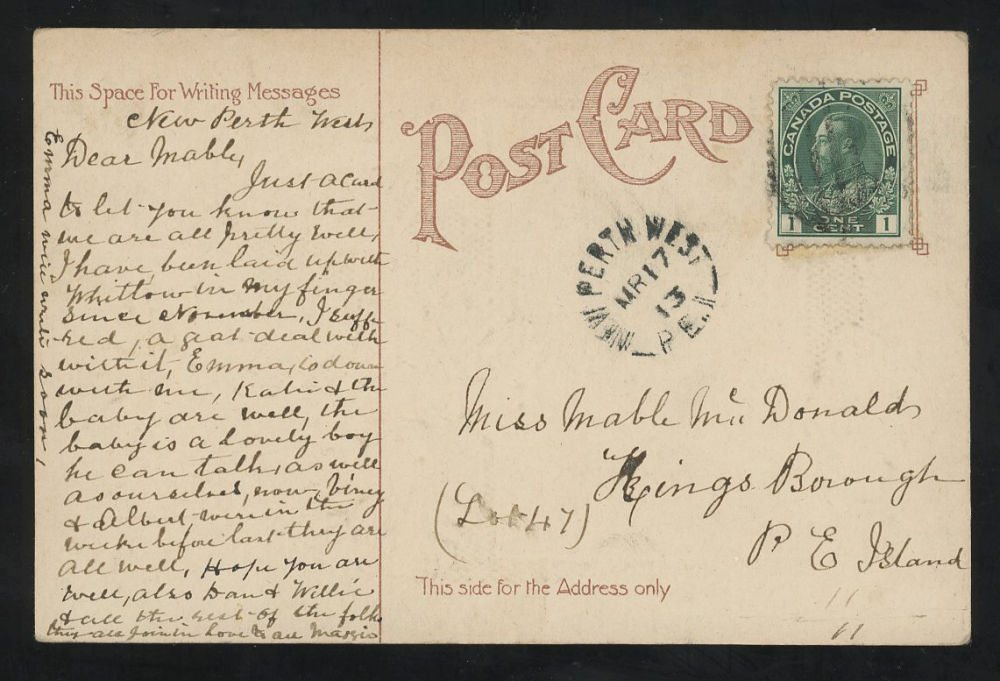 This Space For Writing Messages
New Perth West,
Dear Mable,
Just a Card
to let you know that
we are all pretty well,
I have, been laid up with
Whitlow in my finger
since November, I suff-
red, a great deal with
with it, Emma, is down
with me, Katie & the
baby are well, the
baby is a lovely boy
he can talk, as well
as ourselves, now, Viney
& Albert, were in the
week before last they are
all well, Hope you are
well, also Dan & Willie
& all the rest of the folk
they all join in Love to all Maggie
Emma will write soon,
POST CARD
CANADA POSTAGE
1 ONE CENT 1
NEW PERTH WEST
MR 17
13
P.E.I.
Miss Mable Mc Donald,
Kings Borough
(Lot 47)
P E Island
This side for the Address only
11
11